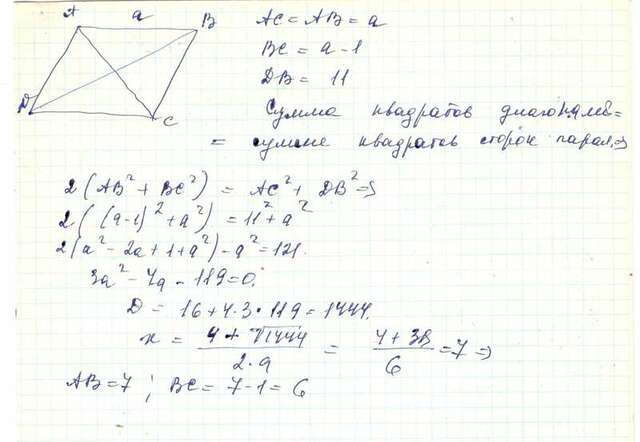 A a B
D C
AC = AB = a
BC = a - 1
DB = 11
Сумма квадратов диагоналей =
= сумме квадратов сторон парал. ⇒
2(AB² + BC²) = AC² + DB² ⇒
2((a-1)² + a²) = 11² + a²
2(a² - 2a + 1 + a²) - a² = 121.
3a² - 4a - 119 = 0.
D = 16 + 4·3·119 = 1444.
x = (4 + √1444) / (2·a) = (4 + 38) / 6 = 7 ⇒
AB = 7 ; BC = 7 - 1 = 6